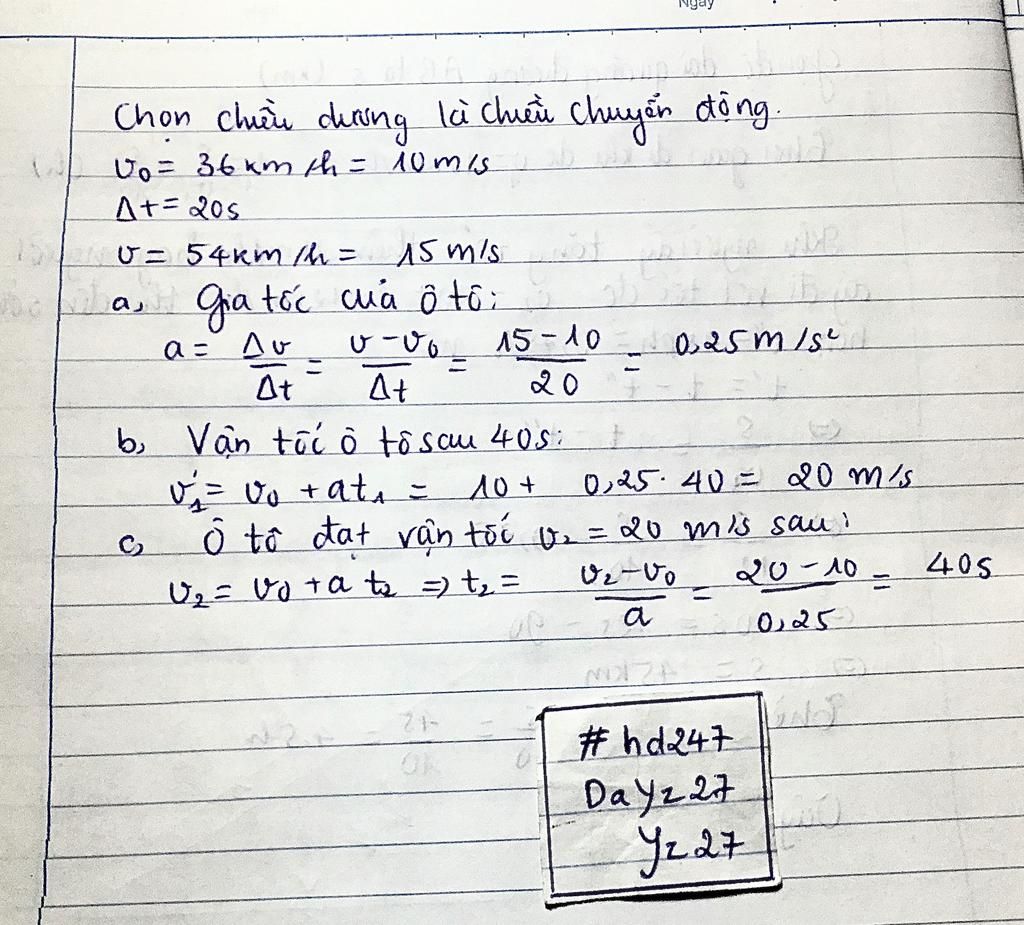 Ngày
Chọn chiều dương là chiều chuyển động.
v₀ = 36 km/h = 10 m/s
Δt = 20s
v = 54km/h = 15 m/s
a, Gia tốc của ô tô:
a = Δv/Δt = (v - v₀)/Δt = (15 - 10)/20 = 0,25 m/s²
b, Vận tốc ô tô sau 40s:
v₁ = v₀ + at₁ = 10 + 0,25 . 40 = 20 m/s
c, Ô tô đạt vận tốc v₂ = 20 m/s sau:
v₂ = v₀ + a t₂ ⇒ t₂ = (v₂ - v₀)/a = (20 - 10)/0,25 = 40s
# hd247
Dayz27
Yz27